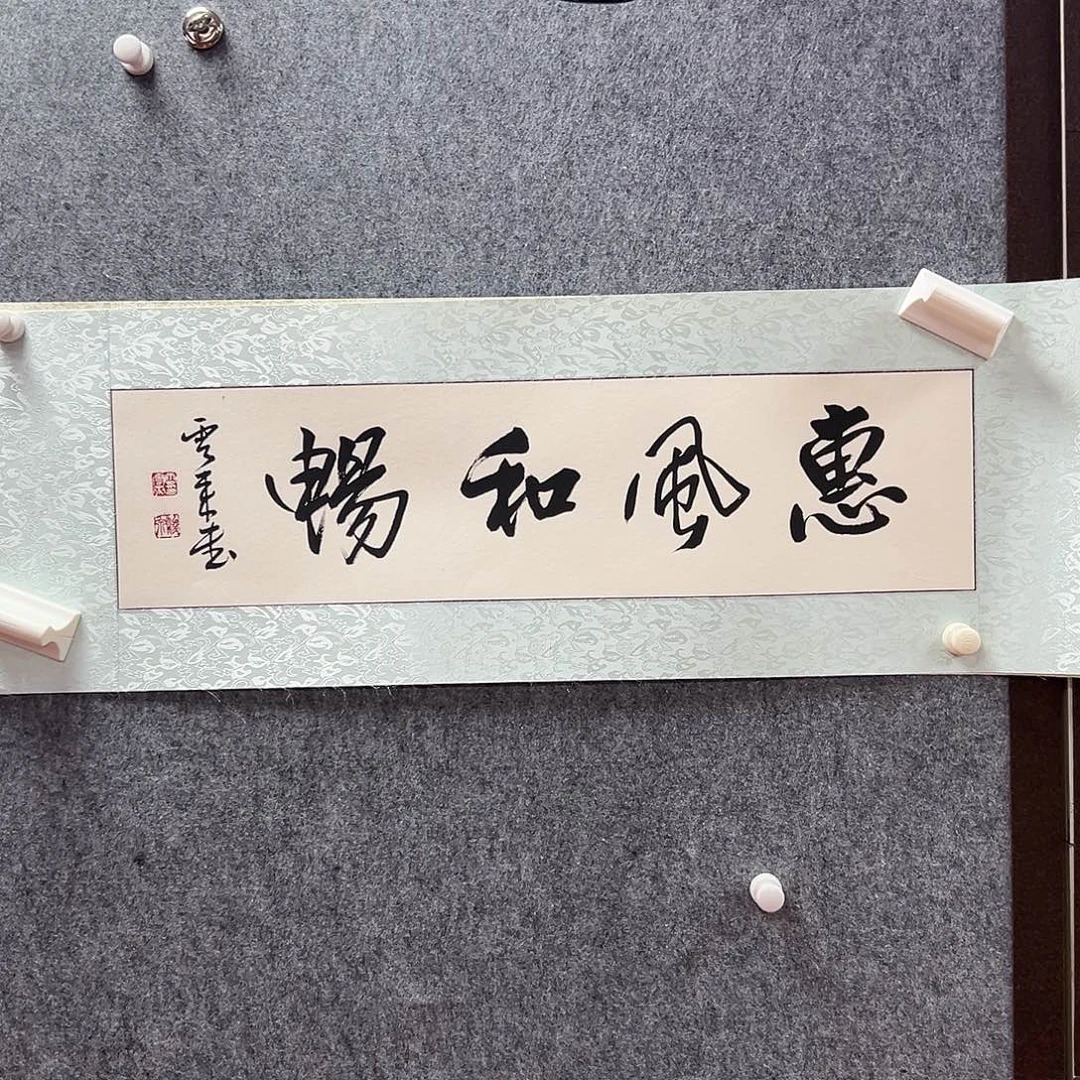 惠風和暢
雲來書